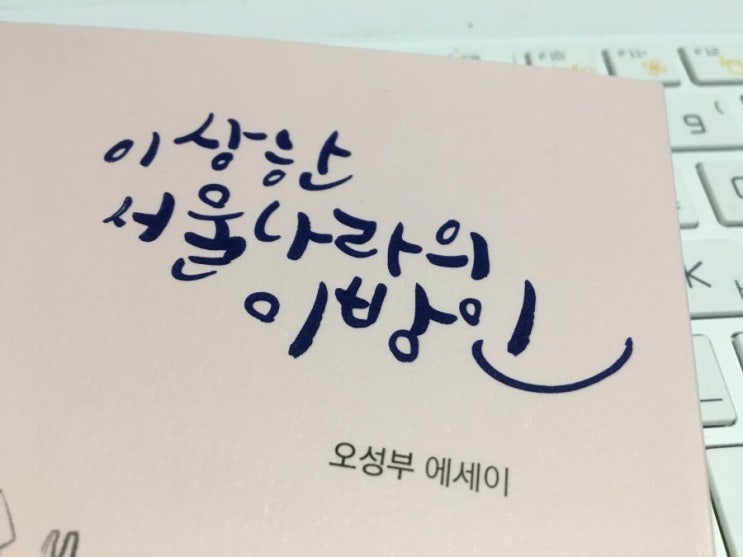 F10 F11 F12
9 (
K
이상한
서울나라의
이방인
오성부 에세이